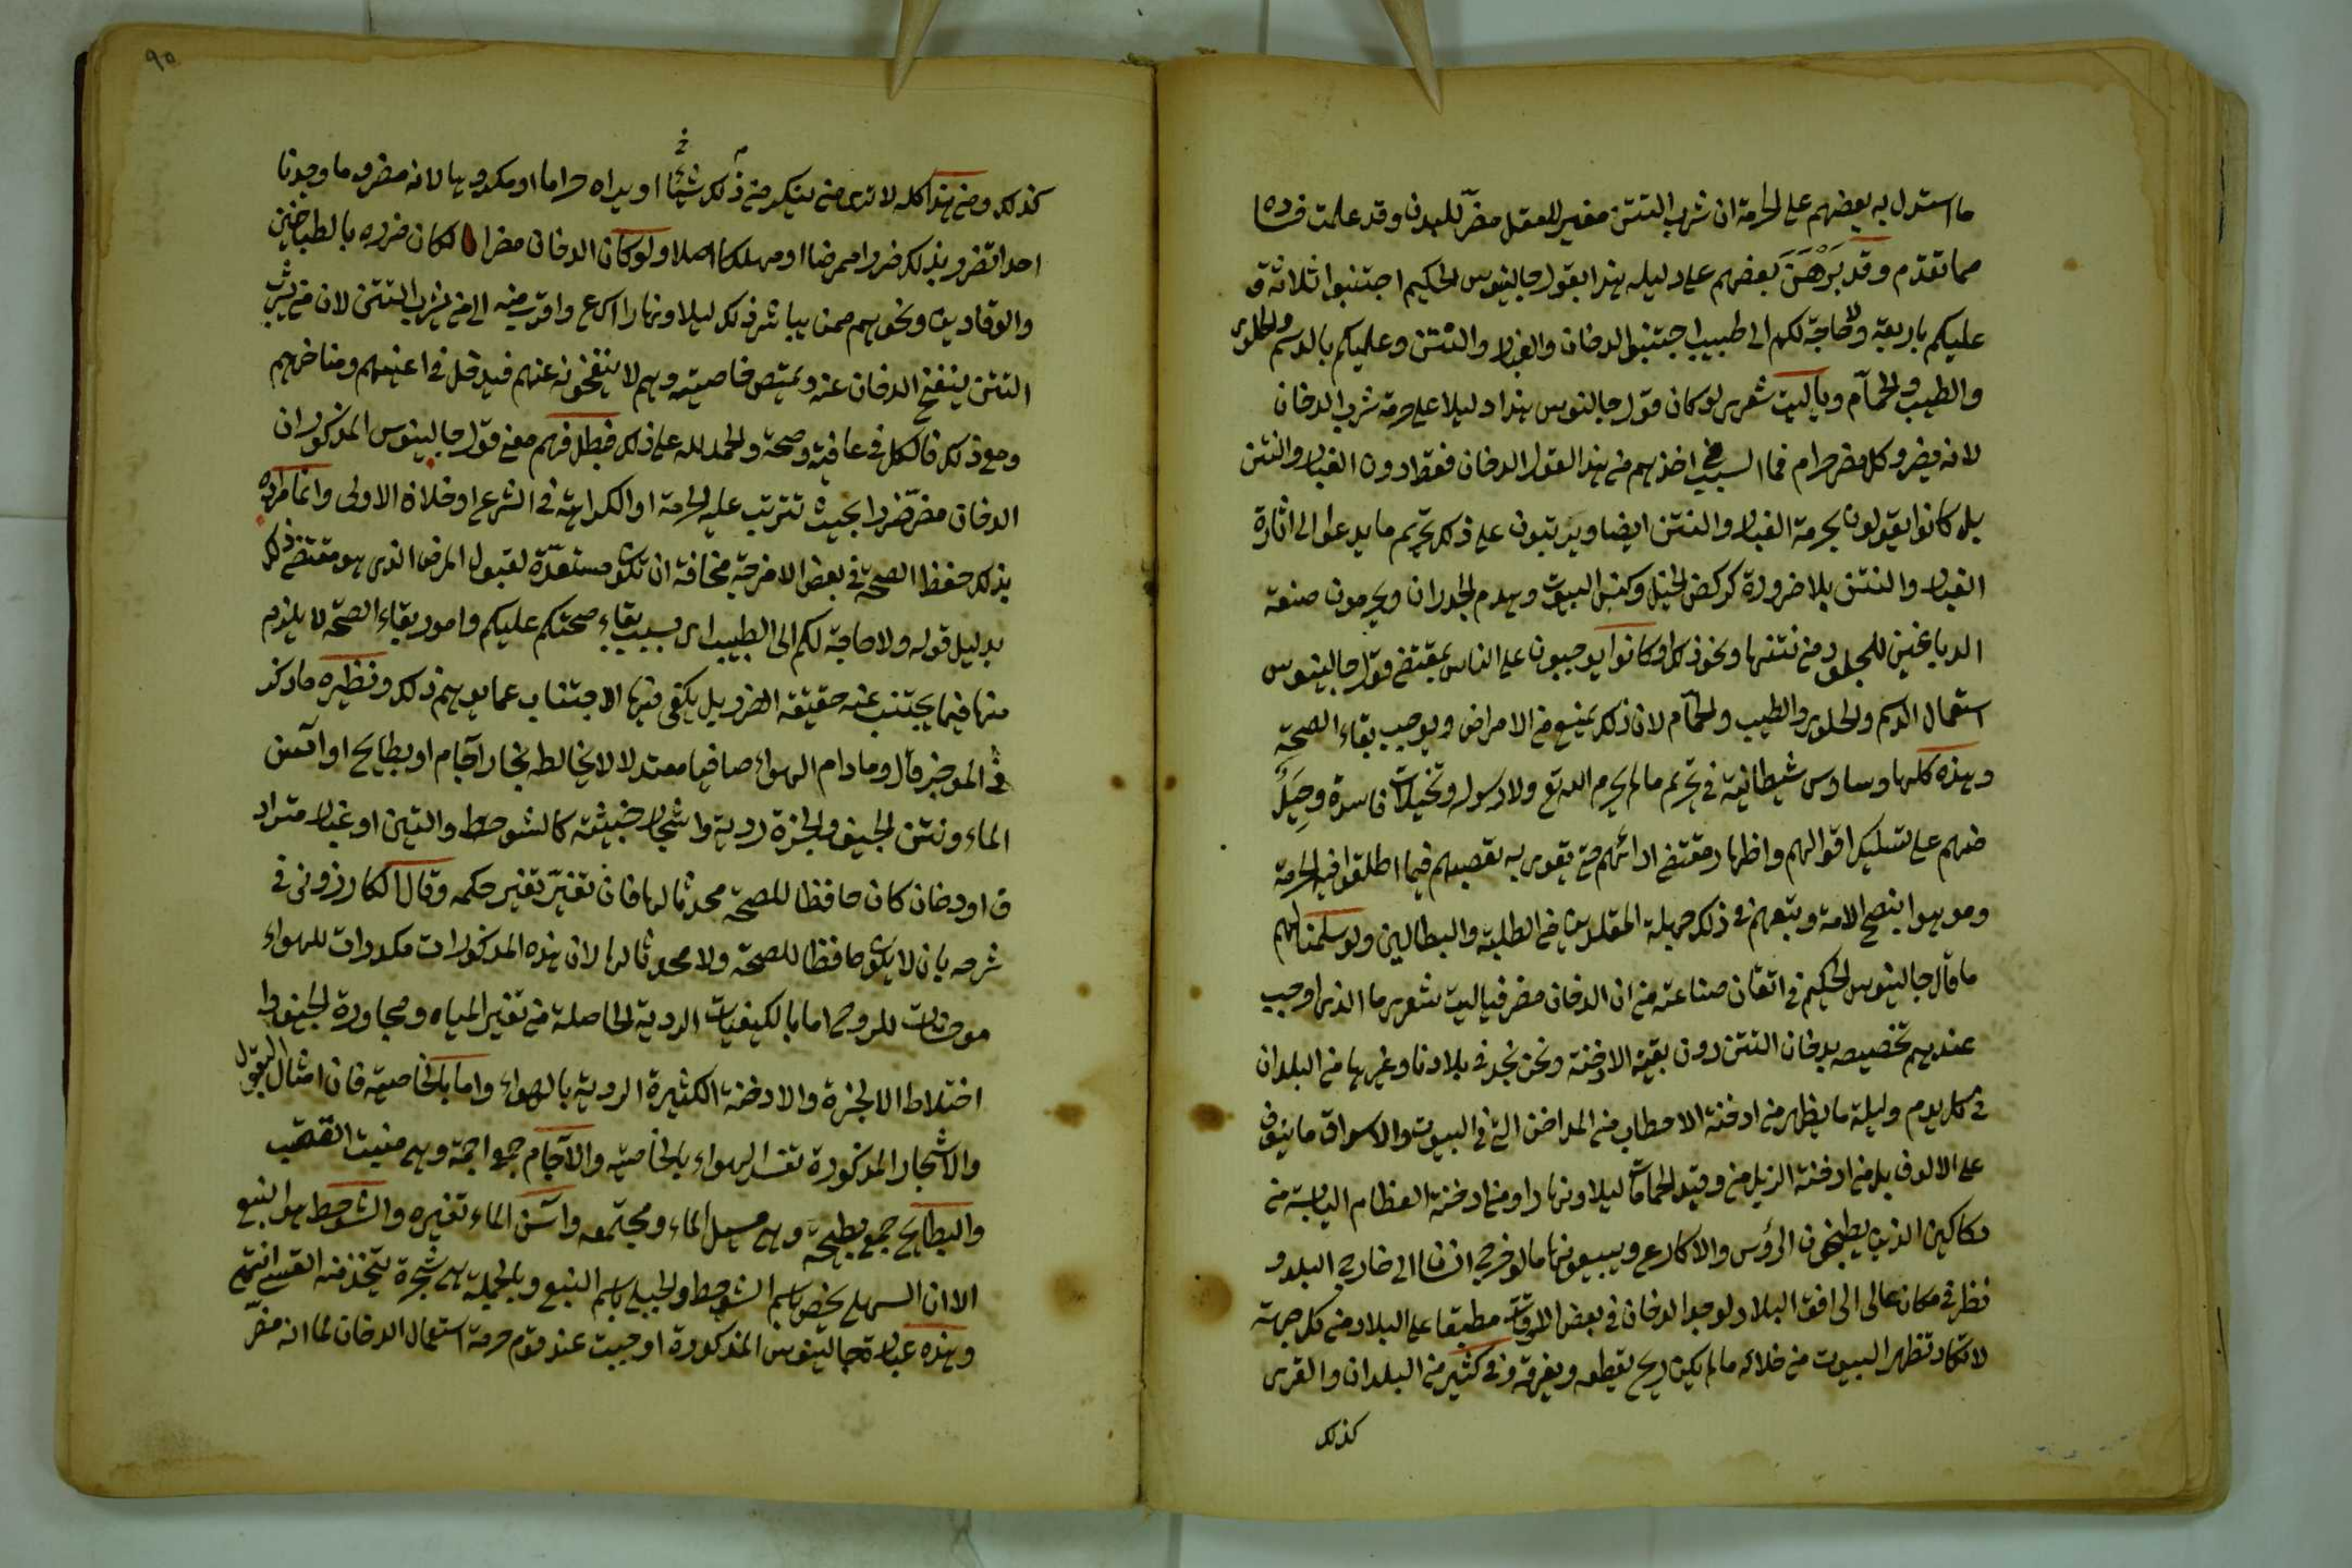 ما استدل به بعضهم على الحرمة ان شرب التتن مغير للعقل مضرّ للبدن وقد علمت فساده
مما تقدم وقد بَرْهَنَ بعضهم على دليله هذا بقول جالينوس الحكيم اجتنبوا ثلاثة و
عليكم باربعة ولا حاجة لكم الى طبيب اجتنبوا الدخان والغبار والنتن وعليكم بالدسم والحلوى
والطيب والحمّام وياليت شعرى لو كان قول جالنوس هذا دليلا على حرمة شرب الدخان
لانه مضر وكل مضر حرام فما السبب في اخذهم من هذا القول الدخان فقط دون الغبار والنتن
بل كانوا يقولون بحرمة الغبار والنتن ايضا ويرتبون على ذلك تحريم ما يدعوا الى اثارة
الغبار والنتن بلا ضرورة كركض الخيل وكنس البيوت وهدم الجدران ويحرمون صنعة
الدباغين للجلود من نتنها ونحو ذلك او كانوا يوجبون على الناس بمقتضى قول جالينوس
استعمال الدسم والحلوى والطيب والحمّام لان ذلك يمنع من الامراض ويوجب بقاء الصحة
وهذه كلها وساوس شيطانية في تحريم مالم يحرم الله تع ولا رسوله وتخيلات فاسدة وحِيَلٌ
منهم على تسليك اقوالهم واظهار مقتضى ارائهم حتى يقوى به تعصبهم فيما اطلقوا فيه الحرمة
وموهوا بنصح الامة ويتبعهم في ذلك جهلة المقلدين من الطلبة والبطالين ولو سلمنا لهم
ما قال جالينوس الحكيم في اتقان صناعته من ان الدخان مضر فياليت شعرى ما الذى اوجب
عندهم تخصيصه بدخان التتن دون بقية الادخنة ونحن نجد في بلادنا وغيرها من البلدان
في كل يوم وليلة ما يظهر من ادخنة الاحطاب من المداخن التى في البيوت والاسواق ما ينوف
على الالوف بل من ادخنة الزبل من وقيد الحمامات ليلا ونهارا ومن ادخنة العظام اليابسة من
دكاكين الذين يطبخون الرؤس والاكارع ويبيعونها ما لو خرج انسان الى خارج البلد و
نظر في مكان عالى الى افق البلاد لوجد الدخان في بعض الاوقات مطبقا على البلاد من كل جهة
لا تكاد تظهر البيوت من خلاله ما لم يكن ريح يقطعه ويفرقه وفي كثير من البلدان والقرى
كذلك
٩٥
كذلك ومن هذا كله لا ترى من ينكر من ذلك شيئا او يراه حراما او مكروها لانه مضر وما وجدنا
احدا تضرر بذلك ضررا ممرضا او مهلكا اصلا ولو كان الدخان مضرا لكان ضرره بالطباخين
والوقادين ونحوهم ممن يباشر ذلك ليلا ونهارا اسرع واقرب منه الى من يشرب التتن لان من يشرب
التتن ينفخ الدخان عنه ويمتص خاصيته وهم لا ينفخونه عنهم فيدخل في اعينهم ومناخرهم
ومع ذلك فالكل في عافية وصحة والحمد لله على ذلك فبطل فهم معنى قول جالينوس المذكور ان
الدخان مضر ضررا بحيث تترتب عليه الحرمة او الكراهة في الشرع او خلاف الاولى وانما مراده
بذلك حفظ الصحة في بعض الامزجة مخافة ان تكون مستعدّة لقبول المرض الذى هو مقتضى ذلك
بدليل قوله ولا حاجة لكم الى الطبيب اى بسبب بقاء صحتكم عليكم وامور بقاء الصحة لا يلزم
منها فيما يجتنب عنه حقيقة الضرر بل يكفى فيها الاجتناب عما يوهم ذلك ونظيره ما ذكر
في الموجز قال وما دام الهواء صافيا معتدلا لا يخالطه بخار آجام او بطايح او آسن
الماء ونتن الجيف والجزة ردية واشجار خبيثة كالشوحط والتين او غبار متراد
ف او دخان كان حافظا للصحة محدثا لها فان تغيّر تغير حكمه وقال الكارزونى في
شرحه بان لا يكون حافظا للصحة ولا محدثا لها لان هذه المذكورات مكدرات للهواء
موحشات للروح اما بالكيفيات الردية الحاصلة من تغير المياه ومجاورة الجيف وا
اختلاط الابخرة والادخنة الكثيرة الردية بالهواء واما بالخاصية فان امثال البقول
والاشجار المذكورة تفسد الهواء بالخاصية والآجام جمع اجمة وهى منبت القصب
والبطايح جمع بطيحة وهى مسيل الماء ومجتمعه وآسن الماء تغيره والشوحط هو النبع
الا ان السهلى يخص باسم الشوحط والجبلى باسم النبع وبالجملة هى شجرة يتخذ منه القسى انتهى
وهذه عبارة جالينوس المذكورة اوجبت عند قوم حرمة استعمال الدخان لما انه مضرّ